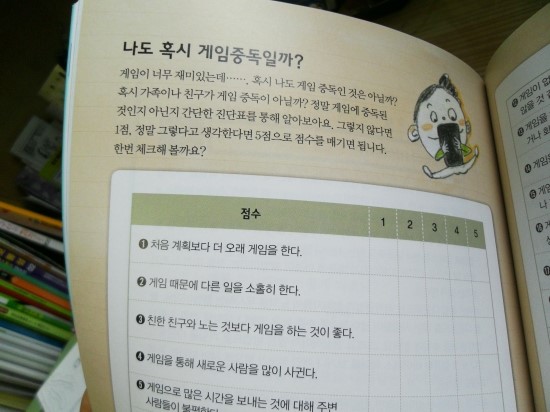 나도 혹시 게임중독일까?
게임이 너무 재미있는데……, 혹시 나도 게임 중독인 것은 아닐까?
혹시 가족이나 친구가 게임 중독이 아닐까? 정말 게임에 중독된
것인지 아닌지 간단한 진단표를 통해 알아보아요. 그렇지 않다면
1점, 정말 그렇다고 생각한다면 5점으로 점수를 매기면 됩니다.
한번 체크해 볼까요?
점수 1 2 3 4 5
❶ 처음 계획보다 더 오래 게임을 한다.
❷ 게임 때문에 다른 일을 소홀히 한다.
❸ 친한 친구와 노는 것보다 게임을 하는 것이 좋다.
❹ 게임을 통해 새로운 사람을 많이 사귄다.
❺ 게임으로 많은 시간을 보내는 것에 대해 주변
사람들이
게임이
않을 것
게임을
거나